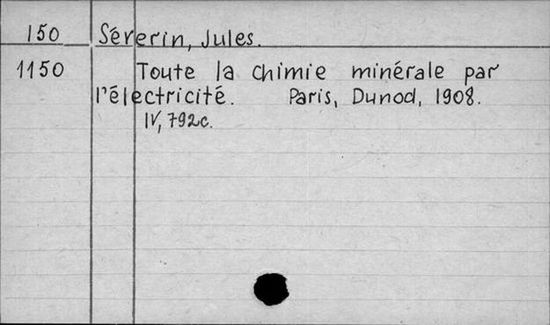 150 Séverin, Jules.
1150 Toute la chimie minérale par
l'électricité. Paris, Dunod, 1908.
IV, 792c.